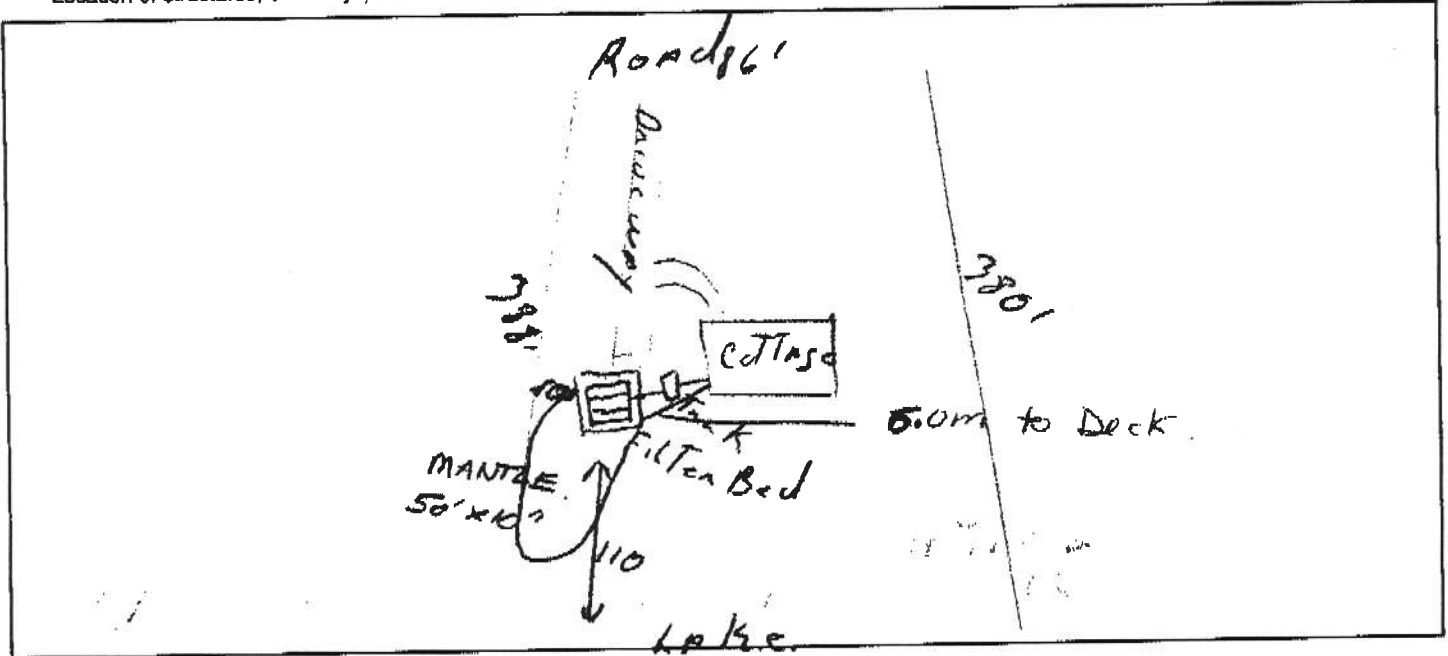 Road 86'
Driveway
388'
380'
Cottage
5.0m to Deck
Filter Bed
MANTLE
50' x 10"
110
Lake